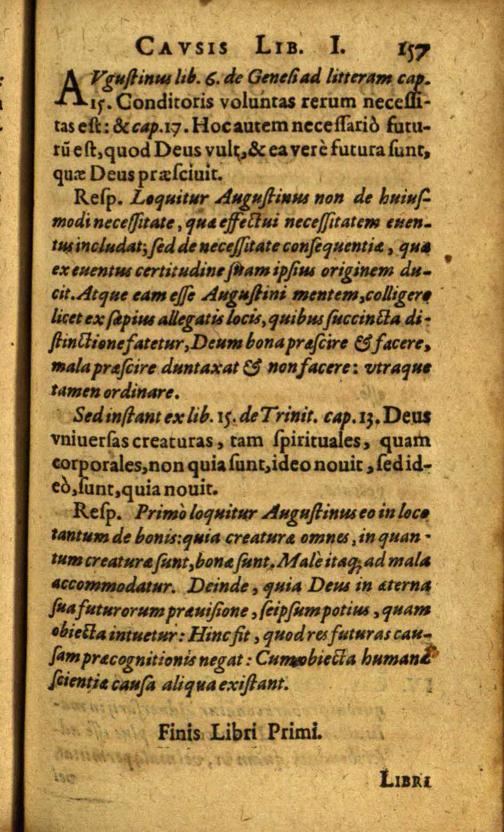 CAVSIS LIB. I. 157
AVguſtinus lib. 6. de Geneſi ad litteram cap.
15. Conditoris voluntas rerum neceſſi-
tas eſt: & cap. 17. Hoc autem neceſſariò futu-
rū eſt, quod Deus vult, & ea verè futura ſunt,
quæ Deus præſciuit.
Reſp. Loquitur Auguſtinus non de huiuſ-
modi neceſſitate, quæ effectui neceſſitatem euen-
tus includat; ſed de neceſſitate conſequentiæ, quæ
ex euentus certitudine ſuam ipſius originem du-
cit. Atque eam eſſe Auguſtini mentem, colligere
licet ex ſæpius allegatis locis, quibus ſuccincta di-
ſtinctione fatetur, Deum bona præſcire & facere,
mala præſcire duntaxat & non facere: vtraque
tamen ordinare.
Sed inſtant ex lib. 15. de Trinit. cap. 13. Deus
vniuerſas creaturas, tam ſpirituales, quam
corporales, non quia ſunt, ideo nouit, ſed id-
eò, ſunt, quia nouit.
Reſp. Primò loquitur Auguſtinus eo in loco
tantum de bonis: quia creaturæ omnes, in quan-
tum creaturæ ſunt, bonæ ſunt. Malè itaq; ad mala
accommodatur. Deinde, quia Deus in æterna
ſua futurorum præuiſione, ſeipſum potius, quam
obiecta intuetur: Hinc fit, quod res futuras cau-
ſam præcognitionis negat: Cum obiecta humanæ
ſcientiæ cauſa aliqua exiſtant.
Finis Libri Primi.
LIBRI